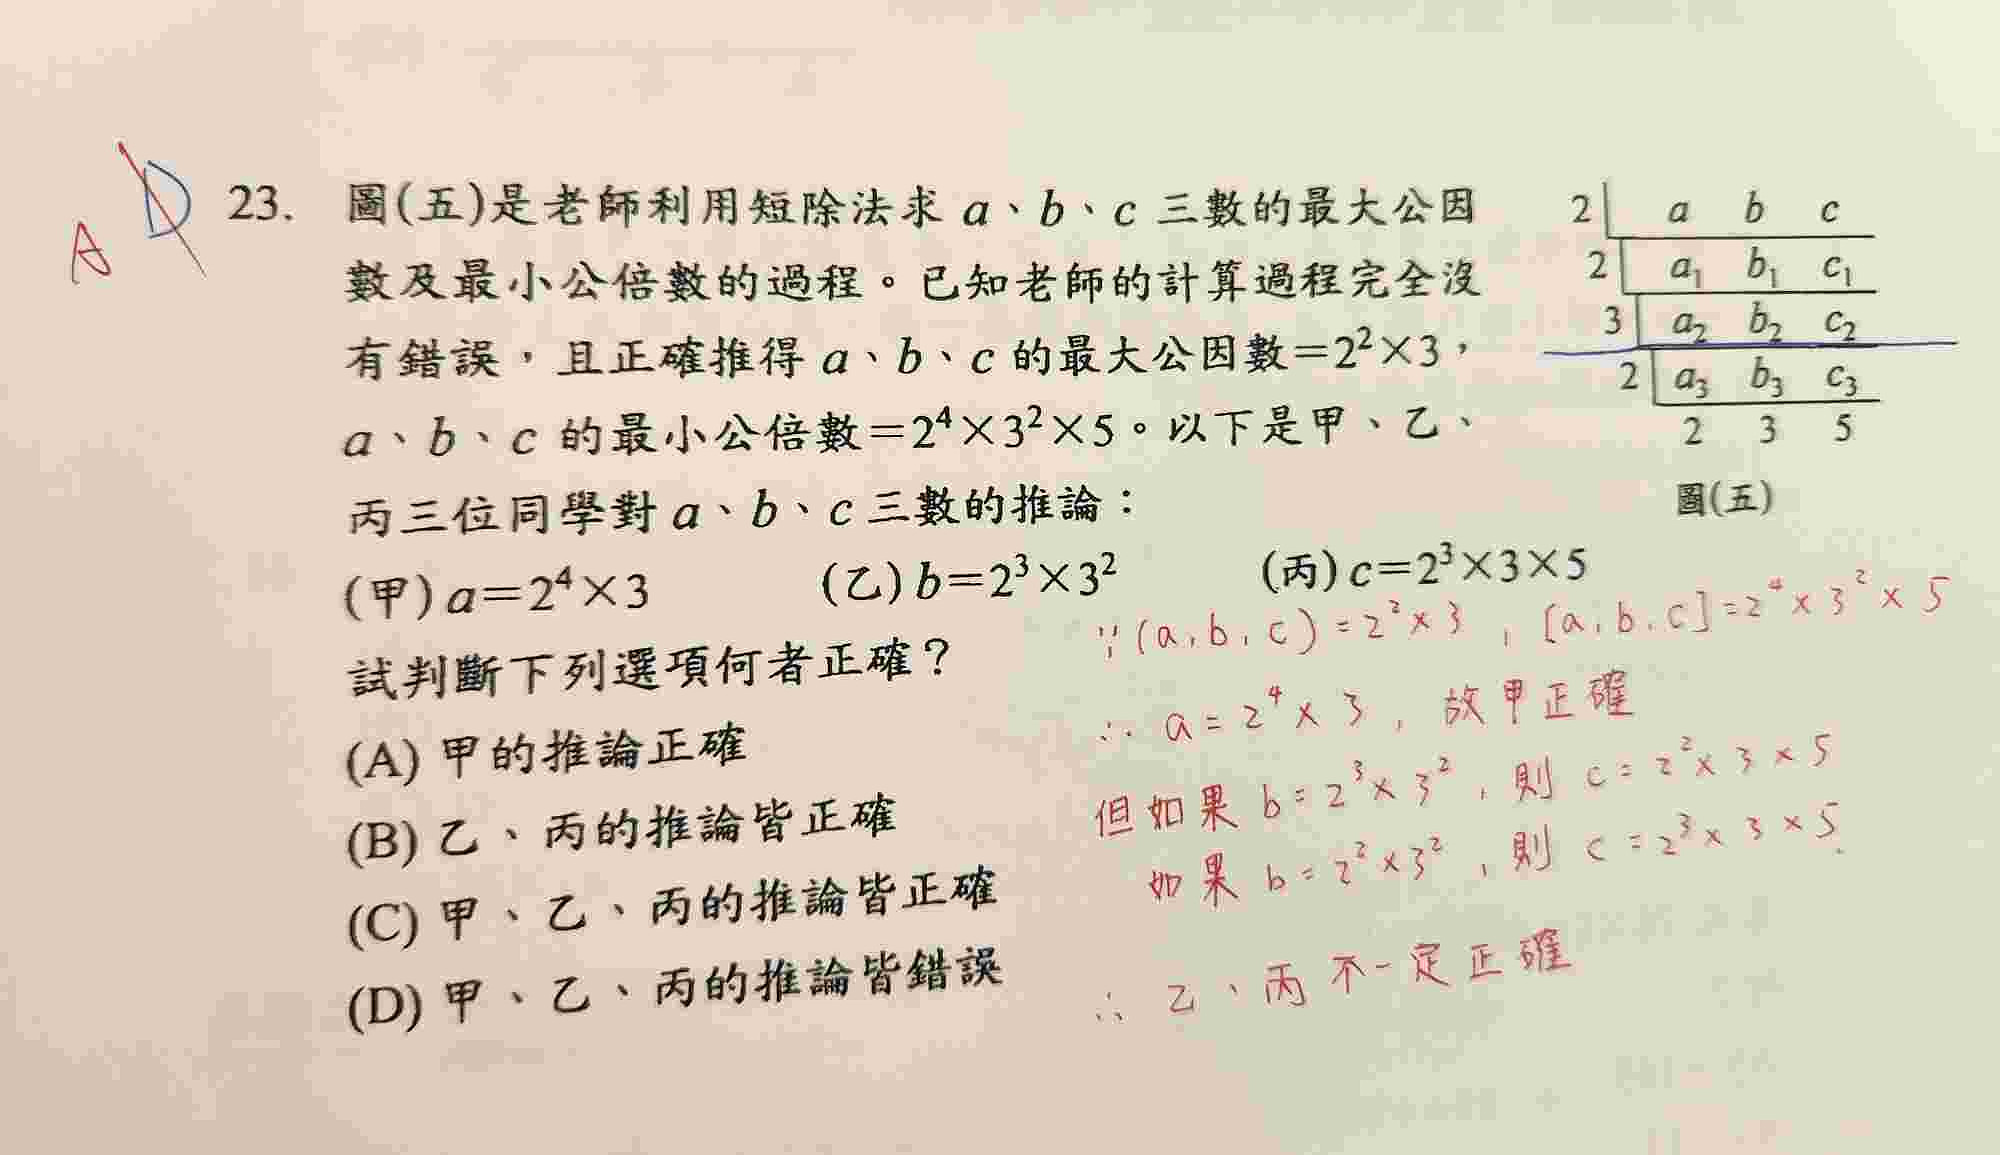 A
D
23. 圖(五)是老師利用短除法求 a、b、c 三數的最大公因
數及最小公倍數的過程。已知老師的計算過程完全沒
有錯誤，且正確推得 a、b、c 的最大公因數=2²×3，
a、b、c 的最小公倍數=2⁴×3²×5。以下是甲、乙、
丙三位同學對 a、b、c 三數的推論：
(甲) a=2⁴×3 (乙) b=2³×3² (丙) c=2³×3×5
試判斷下列選項何者正確？
(A) 甲的推論正確
(B) 乙、丙的推論皆正確
(C) 甲、乙、丙的推論皆正確
(D) 甲、乙、丙的推論皆錯誤
2 a b c
2 a₁ b₁ c₁
3 a₂ b₂ c₂
2 a₃ b₃ c₃
2 3 5
圖(五)
∵(a,b,c)=2²×3，[a,b,c]=2⁴×3²×5
∴ a=2⁴×3，故甲正確
但如果 b=2³×3²，則 c=2²×3×5
如果 b=2²×3²，則 c=2³×3×5.
∴ 乙、丙不一定正確